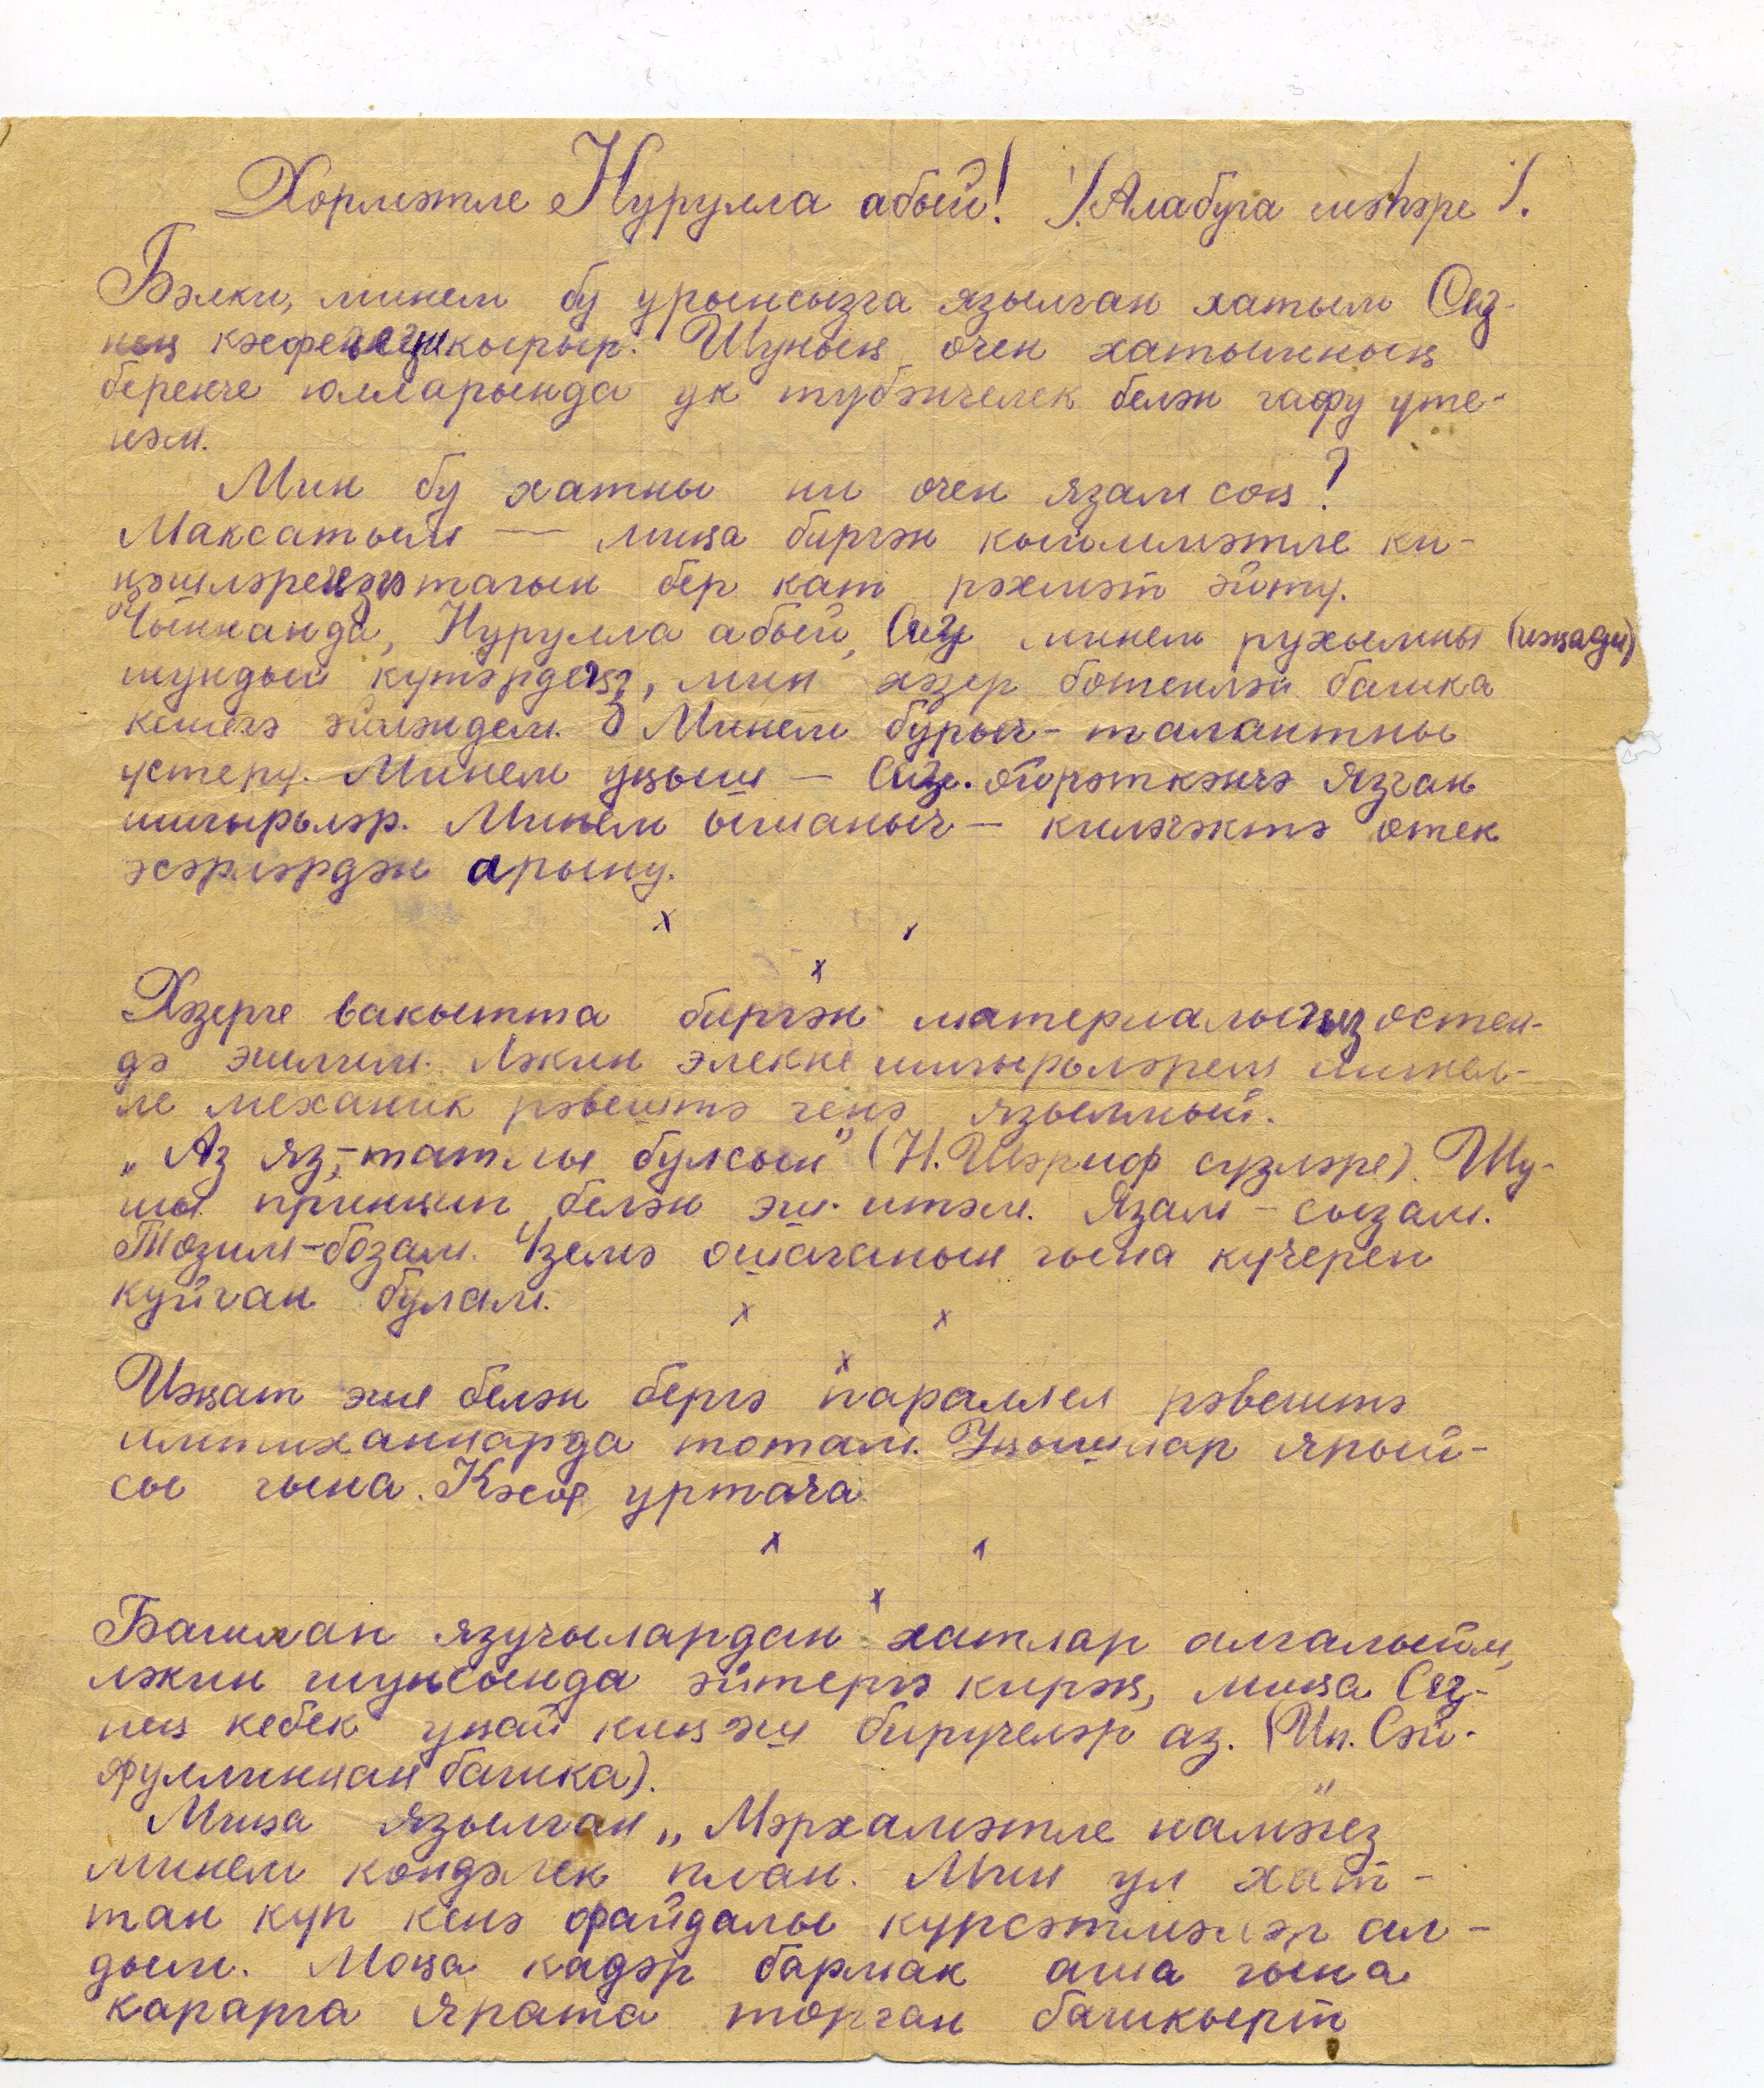 Хормэтле Нурулла абый! /.Алабуга шэһэре/.
Бэлки, минем бу урынсызга язылган хатым Сез-
нең кәефегезне кырыр. Шуның очен хатымның
беренче юлларында ук тубэнчелек белэн гафу уте-
нэм.
Мин бу хатны ни очен язам соң?
Максатым — миңа биргэн кыйммэтле ки-
ңэшлэрегезгэ тагын бер кат рэхмэт эйту.
Чыннанда, Нурулла абый, Сиз минем рухымны (иҗади)
шундый кутэрдегез, мин хэзер ботенлэй башка
кешегэ эйлэндем. Минем бурыч - талантны
устеру. Минем уңыш — Сиз ойрэткэнчэ язган
шигырьлэр. Минем ышаныч — килэчэктэ отек
эсэрлэрдэн арыну.
х х
х
Хэзерге вакытта биргэн материалыгыз остен-
дэ эшлим. Лэкин элекке шигырьлэрем шикел-
ле механик рэвештэ генэ язылмый.
„Аз яз,-татлы булсын" (Н. Шэриф сузлэре). Шу-
шы принцип белэн эш итэм. Язам - сызам.
Тозим-бозам. Уземэ ошаганын гына кучереп
куйган булам.
х х
х
Иҗат эше белэн бергэ параллел рэвештэ
имтиханнарда тотам. Уңышлар ярый-
сы гына. Кэеф уртача.
х х
х
Башлап язучылардан хатлар алгалыйм,
лэкин шунсында эйтергэ кирэк, миңа Сез-
нең кебек уңай киңэш биручелэр аз. (Ин. Сэй-
фуллиннан башка).
Миңа язылган „Мэрхамэтле намэгез"
минем кондэлек план. Мин ул хат-
тан куп кенэ файдалы курсэтмэлэр ал-
дым. Моңа кадэр бармак аша гына
карарга ярата торган башкырт